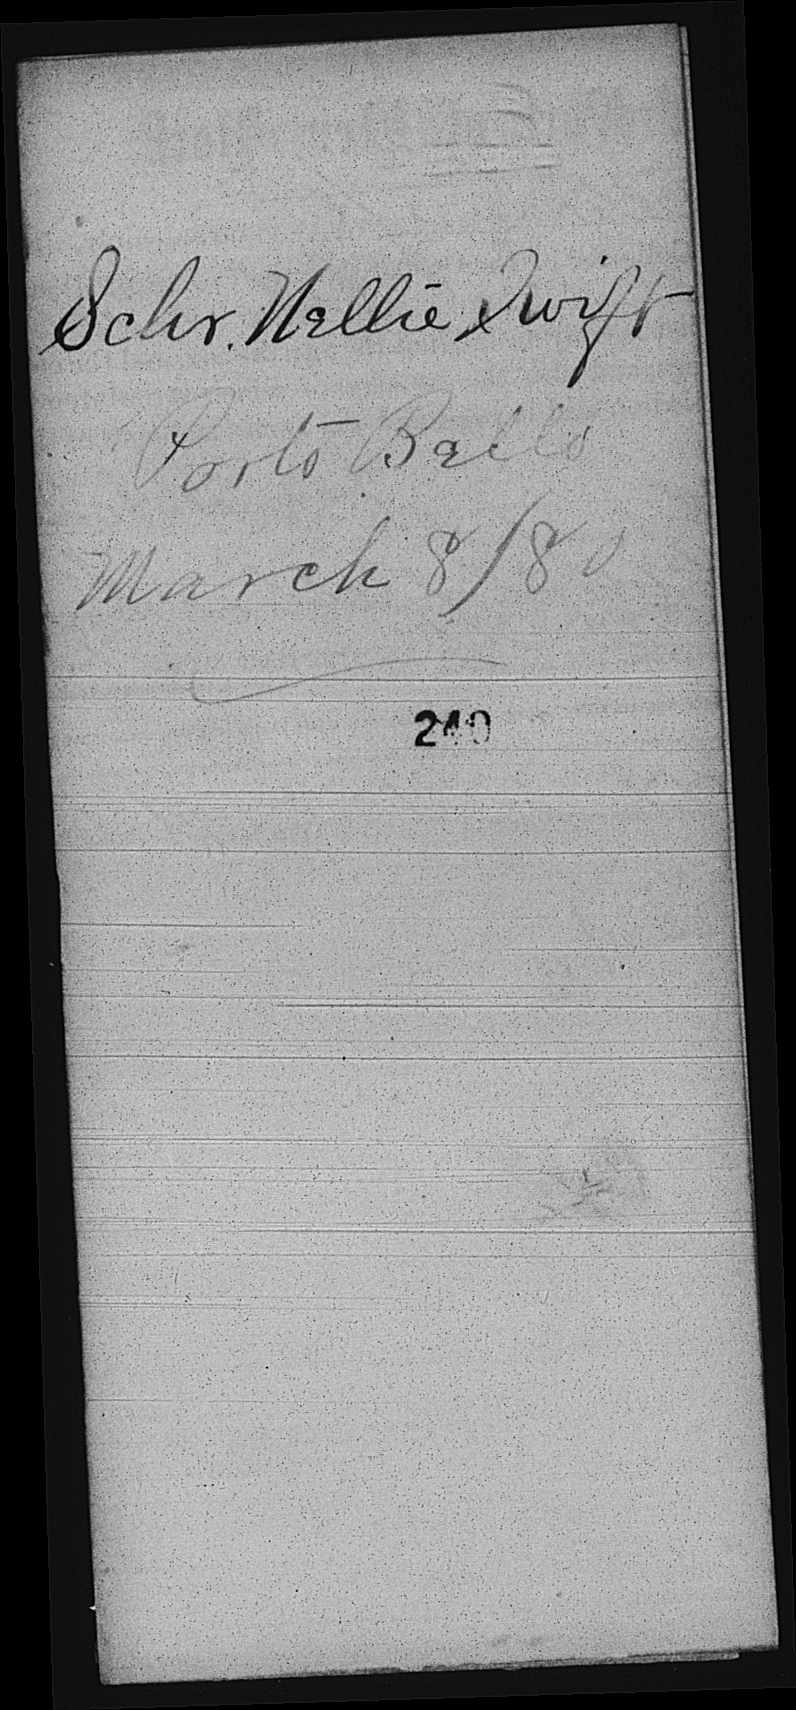 Schr. Nellie Swift
Porto Bello
March 8/80
240